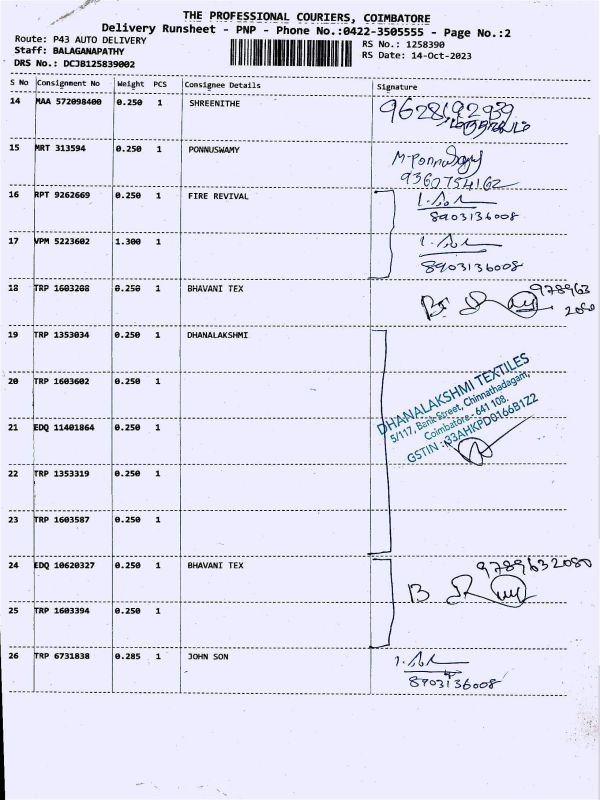 THE PROFESSIONAL COURIERS, COIMBATORE
Delivery Runsheet - PNP - Phone No.:0422-3505555 - Page No.:2
Route: P43 AUTO DELIVERY
RS No.: 1258390
Staff: BALAGANAPATHY
RS Date: 14-Oct-2023
DRS No.: DCJB125839002
S No Consignment No Weight PCS Consignee Details Signature
14 MAA 572098400 0.250 1 SHREENITHE 9628192939
15 MRT 313594 0.250 1 PONNUSWAMY M-Ponnuswamy
9360754162
16 RPT 9262669 0.250 1 FIRE REVIVAL
8903136008
17 VPM 5223602 1.300 1
8903136008
18 TRP 1603208 0.250 1 BHAVANI TEX 978963
2080
19 TRP 1353034 0.250 1 DHANALAKSHMI
DHANALAKSHMI TEXTILES
5/117, Bank Street, Chinnathadagam,
Coimbatore - 641 108.
GSTIN : 33AHKPD0166B1Z2
20 TRP 1603602 0.250 1
21 EDQ 11401864 0.250 1
22 TRP 1353319 0.250 1
23 TRP 1603587 0.250 1
24 EDQ 10620327 0.250 1 BHAVANI TEX 9789632080
25 TRP 1603394 0.250 1
26 TRP 6731838 0.285 1 JOHN SON
8903136008